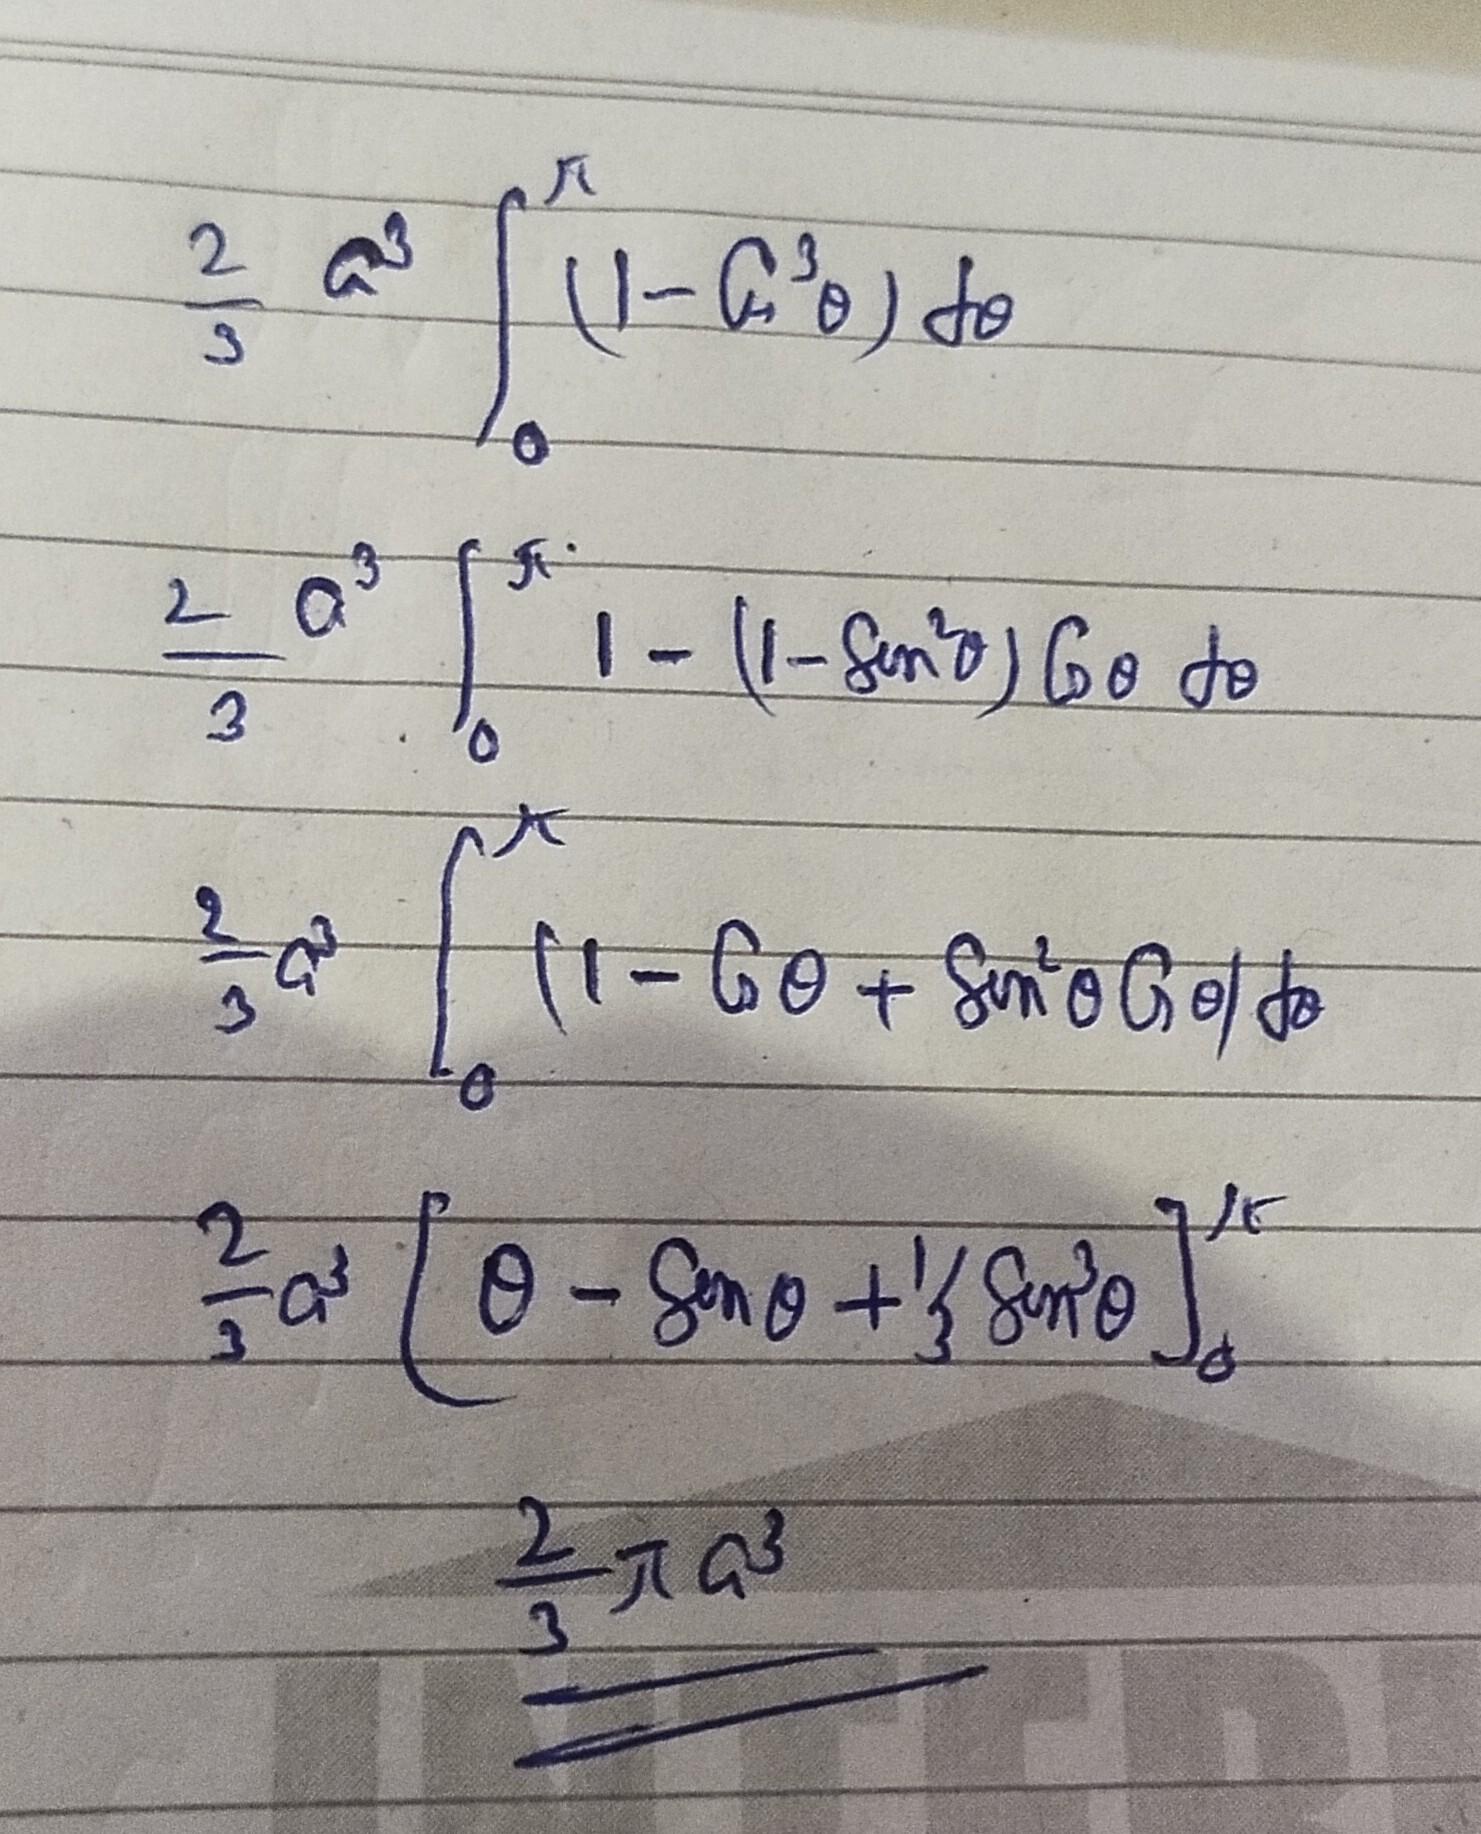 2/3 a³ ∫₀^π (1 - Cos³θ) dθ
2/3 a³ ∫₀^π 1 - (1 - Sin²θ) Cosθ dθ
2/3 a³ ∫₀^π (1 - Cosθ + Sin²θ Cosθ) dθ
2/3 a³ [θ - Sinθ + 1/3 Sin³θ]₀^π
2/3 π a³